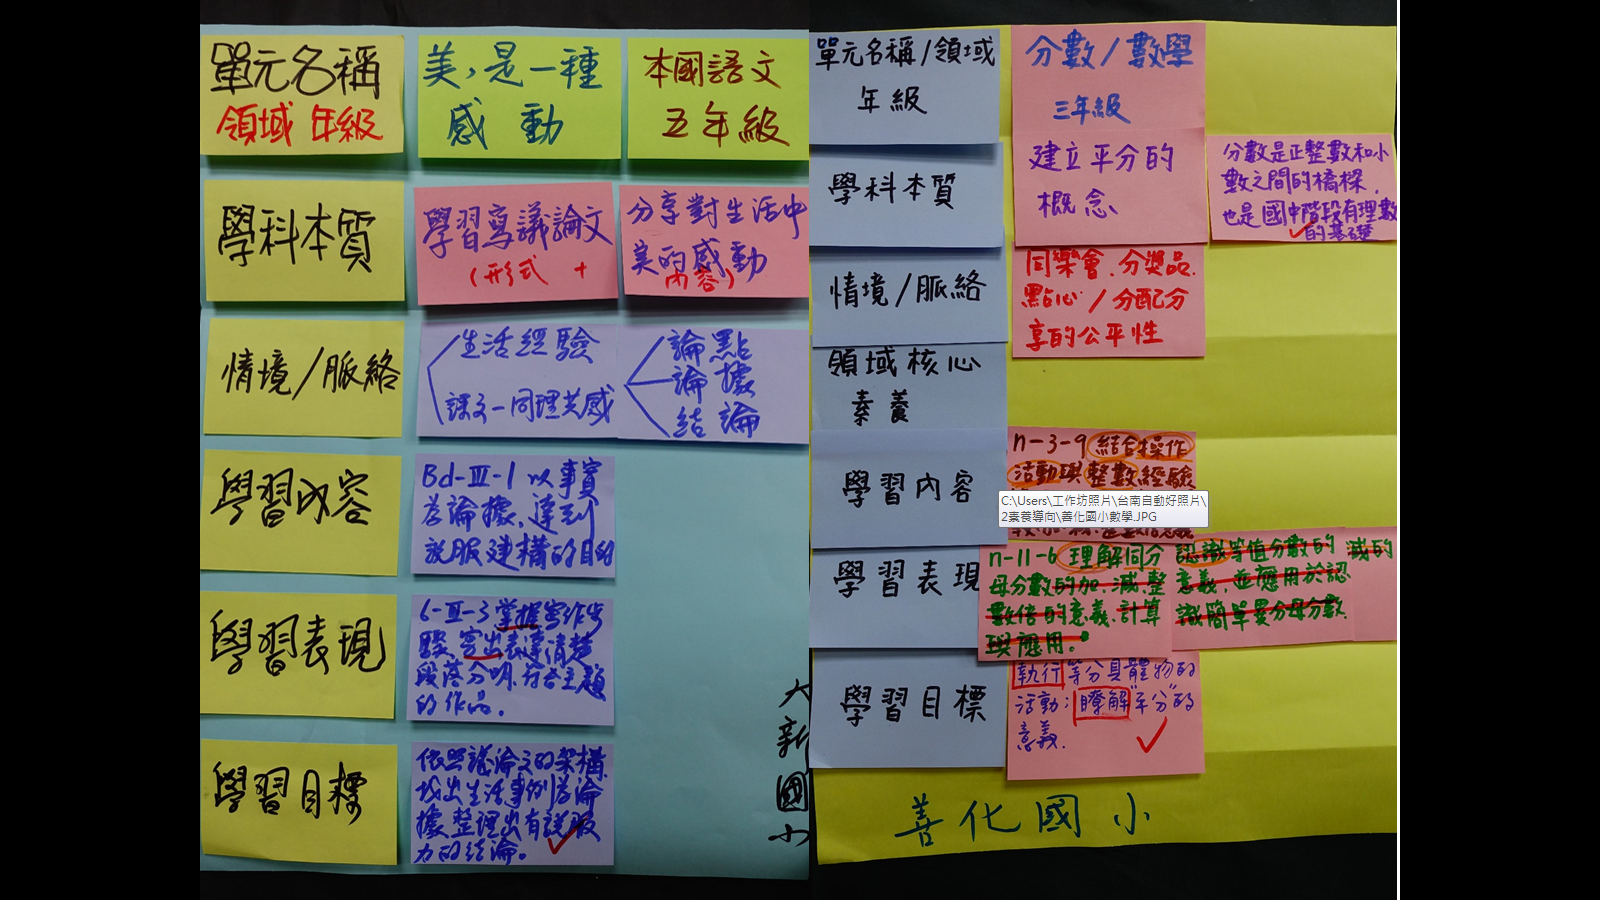 單元名稱
領域 年級
美，是一種
感動
本國語文
五年級
學科本質
學習寫議論文
(形式 +
分享對生活中
美的感動
內容)
情境/脈絡
生活經驗
課文-同理共感
論點
論據
結論
學習內容
Bd-Ⅲ-1 以事實
為論據，達到
說服建構的目的
學習表現
6-Ⅲ-3 掌握寫作步
驟，寫出表達清楚
段落分明，符合主題
的作品。
學習目標
依照議論文的架構，
找出生活事例為論
據，整理出有說服
力的結論。
大
新
國
小
單元名稱/領域
年級
分數/數學
三年級
學科本質
建立平分的
概念
分數是正整數和小
數之間的橋樑，
也是國中階段有理數
的基礎
情境/脈絡
同樂會、分獎品、
點心/分配分
享的公平性
領域核心
素養
學習內容
n-3-9 結合操作
活動與整數經驗
C:\Users\工作坊照片\台南自動好照片\
2素養導向\善化國小數學.JPG
學習表現
n-11-6 理解同分
母分數的加、減、整
數倍的意義、計算
與應用。
認識等值分數的
意義，並應用於認
識簡單異分母分數
減的
學習目標
執行等分具體物的
活動；瞭解"平分"的
意義。
善化國小